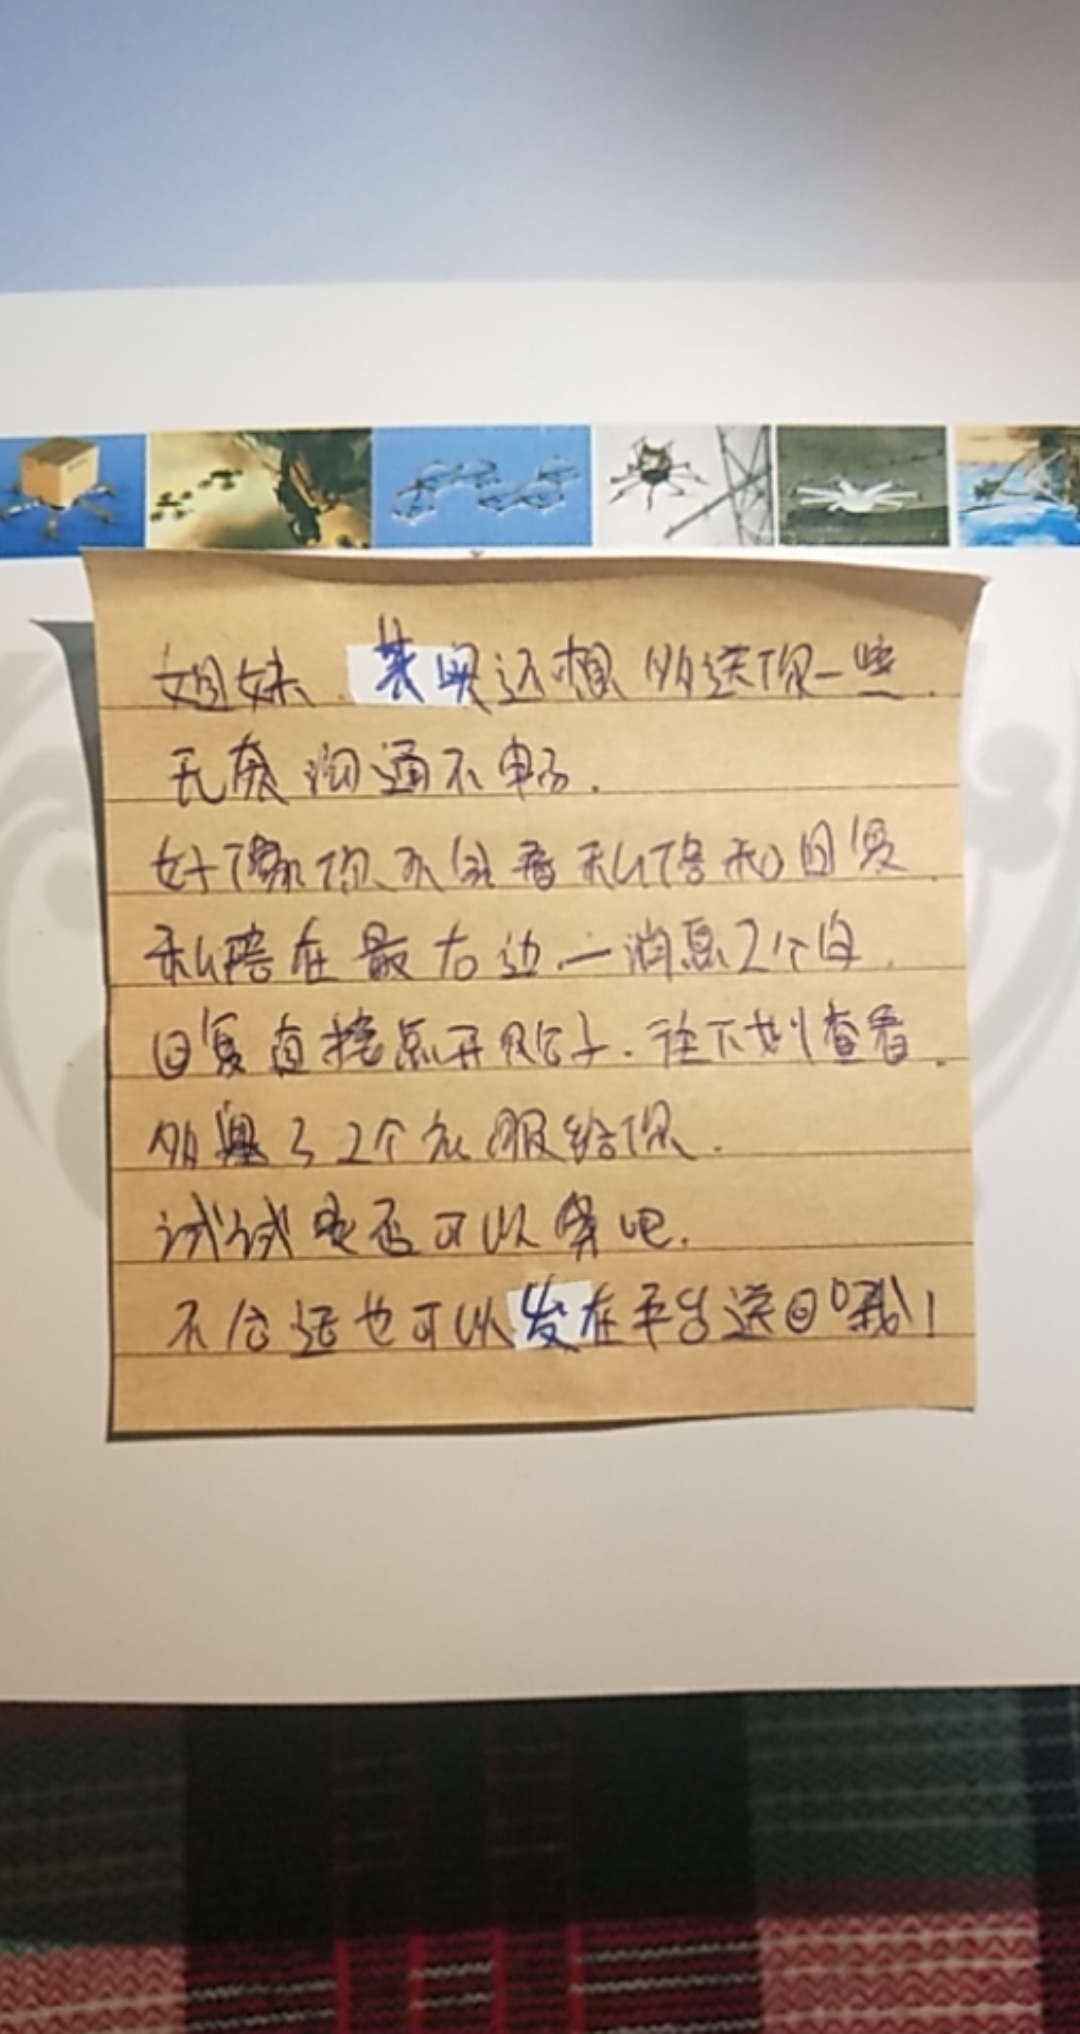 姐妹.其实还想多送你一些.
无奈沟通不畅.
好像你不会看私信和回复.
私信在最右边.一消息2个字.
回复直接点开帖子.往下划查看.
多塞了2个衣服给你.
试试是否可以穿吧.
不合适也可以发在平台送回哦!